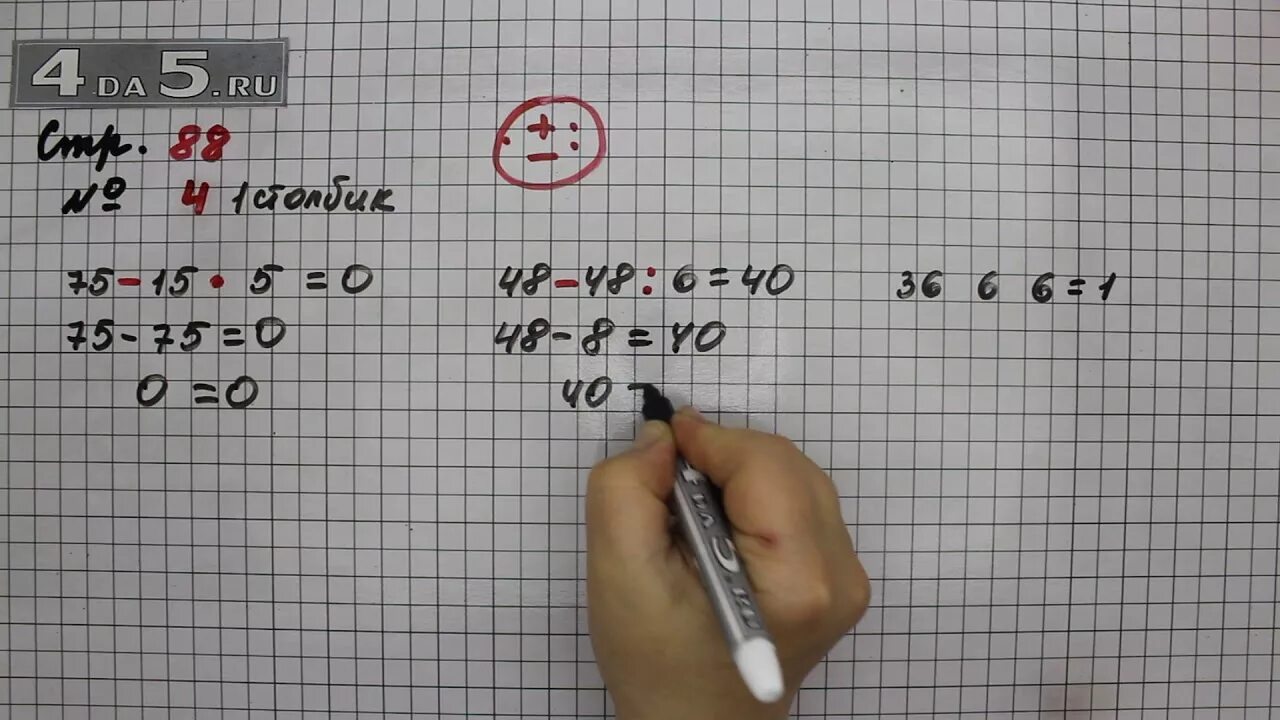 4DA5.RU
Стр. 88
№ 4 1 столбик
· + : −
75 − 15 · 5 = 0
75 − 75 = 0
0 = 0
48 − 48 : 6 = 40
48 − 8 = 40
40
36 6 6 = 1